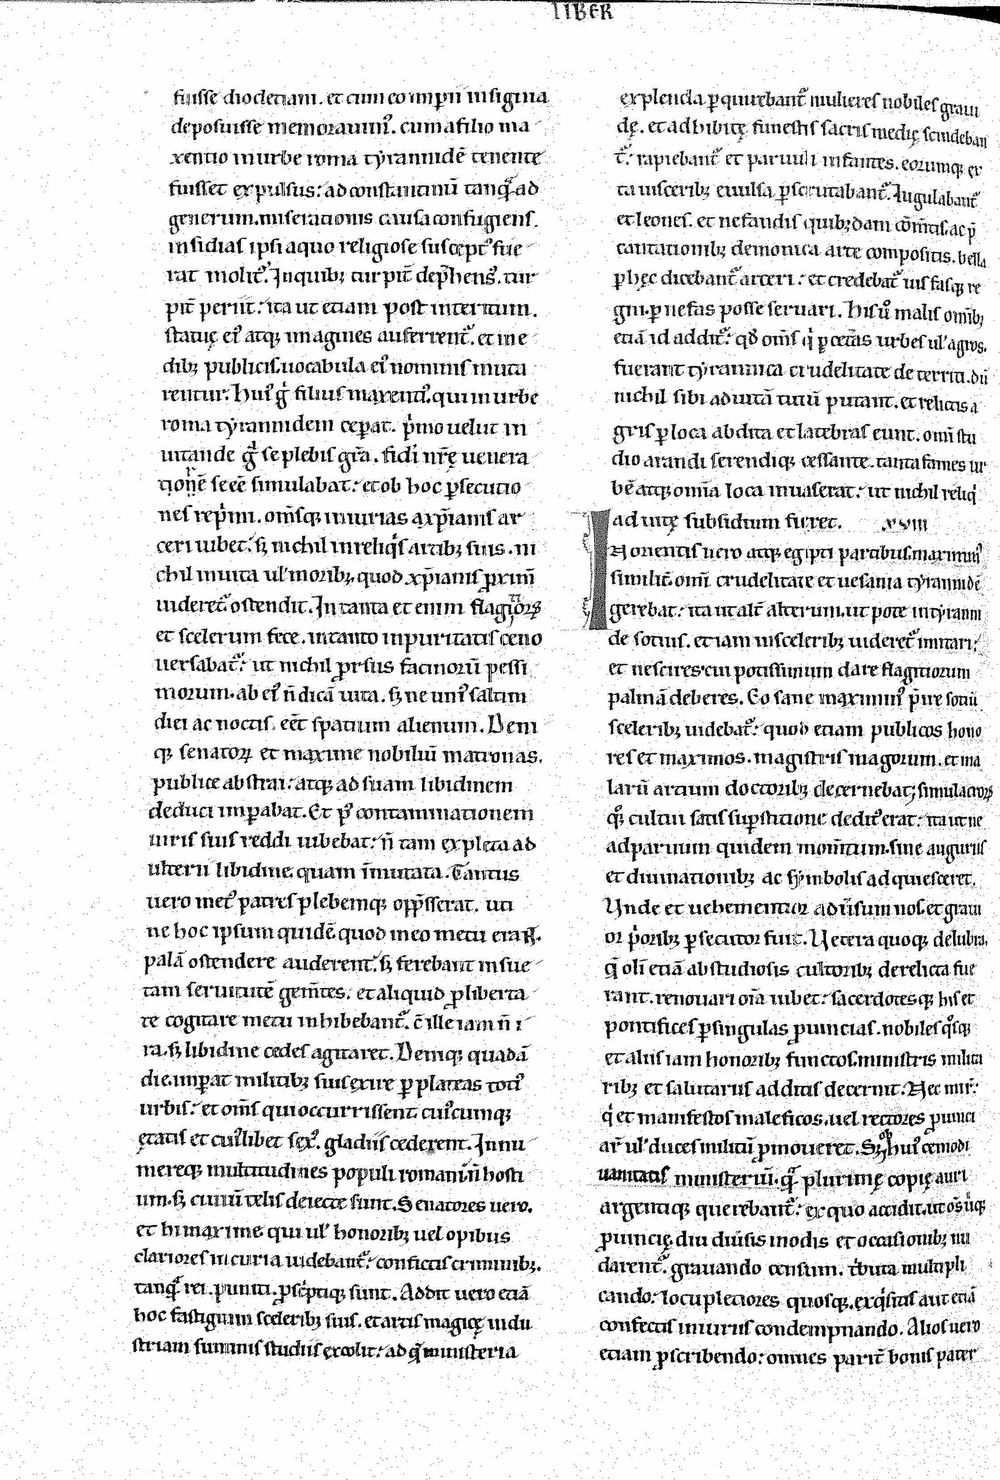 LIBER
fuisse diocletiani. et cum eo imꝑii insignia
deposuisse memorauimꝰ. cum a filio ma
xentio in urbe roma tyrannidē tenente
fuisset expulsus: ad constantinū tanqͣ ad
generum. miserationis causa confugiens.
insidias ipsi a quo religiose susceptꝰ fue
rat molitꝰ. In quibꝫ turpit dep̄hensꝰ. tur
pit periit: ita ut etiam post interitum.
statuę eiꝰ atqꝫ imagines auferrentꝰ. et in e
dibꝫ publicis. uocabula eiꝰ nominis muta
rentur. Huiꝰ gͥ filius maxentiꝰ. qui in urbe
roma tyrannidem ceperat. p̍mo uelut in
uitande gͥ se plebis gr̄a. fidi nr̄ę uenera
tionē se eē simulabat: et ob hoc ꝑsecutio
nes rep̍mi. om̄sqꝫ iniurias a xp̄ianis ar
ceri iubet. sꝫ nichil in reliqͥs artibꝫ suis. ni
chil in uita ul' moribꝫ. quod xp̄ianis ꝓximū
uideretꝰ ostendit. In tanta et enim flagitiorꝝ
et scelerum fece. in tanto inpuritatis ceno
uersabatꝰ: ut nichil ꝓrsus facinorū pessi
morum. ab eiꝰ n̄ dicā uita. sꝫ ne uniꝰ saltim
diei ac noctis. eēt spatium alienum. Deni
qꝫ senatorꝝ et maxime nobiliū matronas.
publice abstrai: atqꝫ ad suam libidinem
deduci imꝑabat. Et pꝰ contaminationem
uiris suis reddi iubebat: n̄ tam expleta ad
ulterii libidine quam īmutata. Tantus
uero metꝰ patres plebemqꝫ opp̄sserat. uti
ne hoc ipsum quidē quod in eo metu erant.
palā ostendere auderent. sꝫ ferebant in sue
tam seruitutē gem̄tes. et aliquid ꝓ liberta
te cogitare metu inhibebantꝰ. c̄ ille iam n̄ i
ra. sꝫ libidine cedes agitaret. Deniqꝫ quadā
die. imꝑat militibꝫ suis exire ꝑ plateas totiꝰ
urbis: et om̄s qui occurrissent. cuiꝰcumqꝫ
ętatis et cuiꝰlibet sexꝰ. gladiis cederent. Innu
mereqꝫ multitudines populi romani n̄ hosti
um. sꝫ ciuiū telis deiecte sunt. Senatores uero.
et hi maxime qui ul' honoribꝫ uel opibus
clariores in curia uidebantꝰ: confictis criminibꝫ.
tanqͣ rei. puniti. ꝓsc̍ptiqꝫ sunt. Addit uero etiā
hoc fastigium sceleribꝫ suis. et artis magicę indu
striam summis studiis excolit: ad qͣ ministeria
explenda ꝑquirebantꝰ mulieres nobiles graui
dę. et adhibitę funestis sacris medię scindeban
tꝰ: rapiebantꝰ et paruuli infantes. eorumqꝫ ex
ta uisceribꝫ euulsa ꝑscrutabantꝰ. Iugulabantꝰ
et leones. et nefandis quibꝫdam cōm̄tis. ac p̄
cantationibꝫ demonica arte compositis. bella
ꝑ hęc dicebantꝰ arceri: et credebatꝰ ius fasqꝫ re
gni. ꝑ nefas posse seruari. His ū malis om̄ibꝫ
etiā id additꝰ: qđ om̄s qͥ ꝑ cetas urbes ul' agros.
fuerant tyrannica crudelitate deterriti. dū
nichil sibi ad uitā tutū putant. et relictis a
gris ꝑ loca abdita et latebras eunt. om̄i stu
dio arandi serendiqꝫ cessante. tanta fames ur
bē atqꝫ omīa loca inuaserat: ut nichil reliqͥ
ad uitę subsidium furet. xviii
In orientis uero atqꝫ egipti partibus. maximinꝰ
similit̄ omī crudelitate et uesania tyrannidē
gerebat: ita ut alt̄ alterum. ut pote in tyranni
de sotius. etiam in sceleribꝫ uideretꝰ imitari:
et nescires cui potissimum dare flagitiorum
palmā deberes. Eo sane maximinꝰ p̍ire sotiū
sceleribꝫ uidebatꝰ: quod etiam publicos hono
res et maximos. magistris magorum. et ma
larū artium doctoribꝫ decernebat. simulacrorꝝ
qꝫ cultui satis suꝑstitione deditꝰ erat: ita ut ne
ad paruum quidem mom̄tum. sine auguriis
et diuinationibꝫ ac symbolis adquiesceret.
Unde et uehementior aduīsum nos. et graui
or p̍oribꝫ ꝑsecutor fuit. Uetera quoqꝫ delubra.
qͣ olī etiā ab studiosis cultoribꝫ derelicta fue
rant. renouari om̄a iubet: sacerdotesqꝫ his et
pontifices ꝑ singulas ꝓuincias. nobiles qͦsqꝫ
et aliis iam honoribꝫ functos. ministris milita
ribꝫ et salutariis additis decernit. Nec mir:
qͥ et manifestos maleficos. uel rectores ꝓuinci
arꝰ ul' duces militū ꝓmoueret. Sꝫ huiꝰcemodi
uanitatis ministeriū. qͣ plurimę copię auri
argentiqꝫ querebantꝰ: ex quo accidit. ut om̄s ubiqꝫ
ꝓuincię diu diuīsis modis et occasionibꝫ nu
darentꝰ. grauando censum. tͥbuta multipli
cando: locupletiores quosqꝫ. exqͥsitis aut etiā
confectis iniuriis condempnando. Alios uero
etiam ꝓscribendo: omnes parit̄ bonis pater